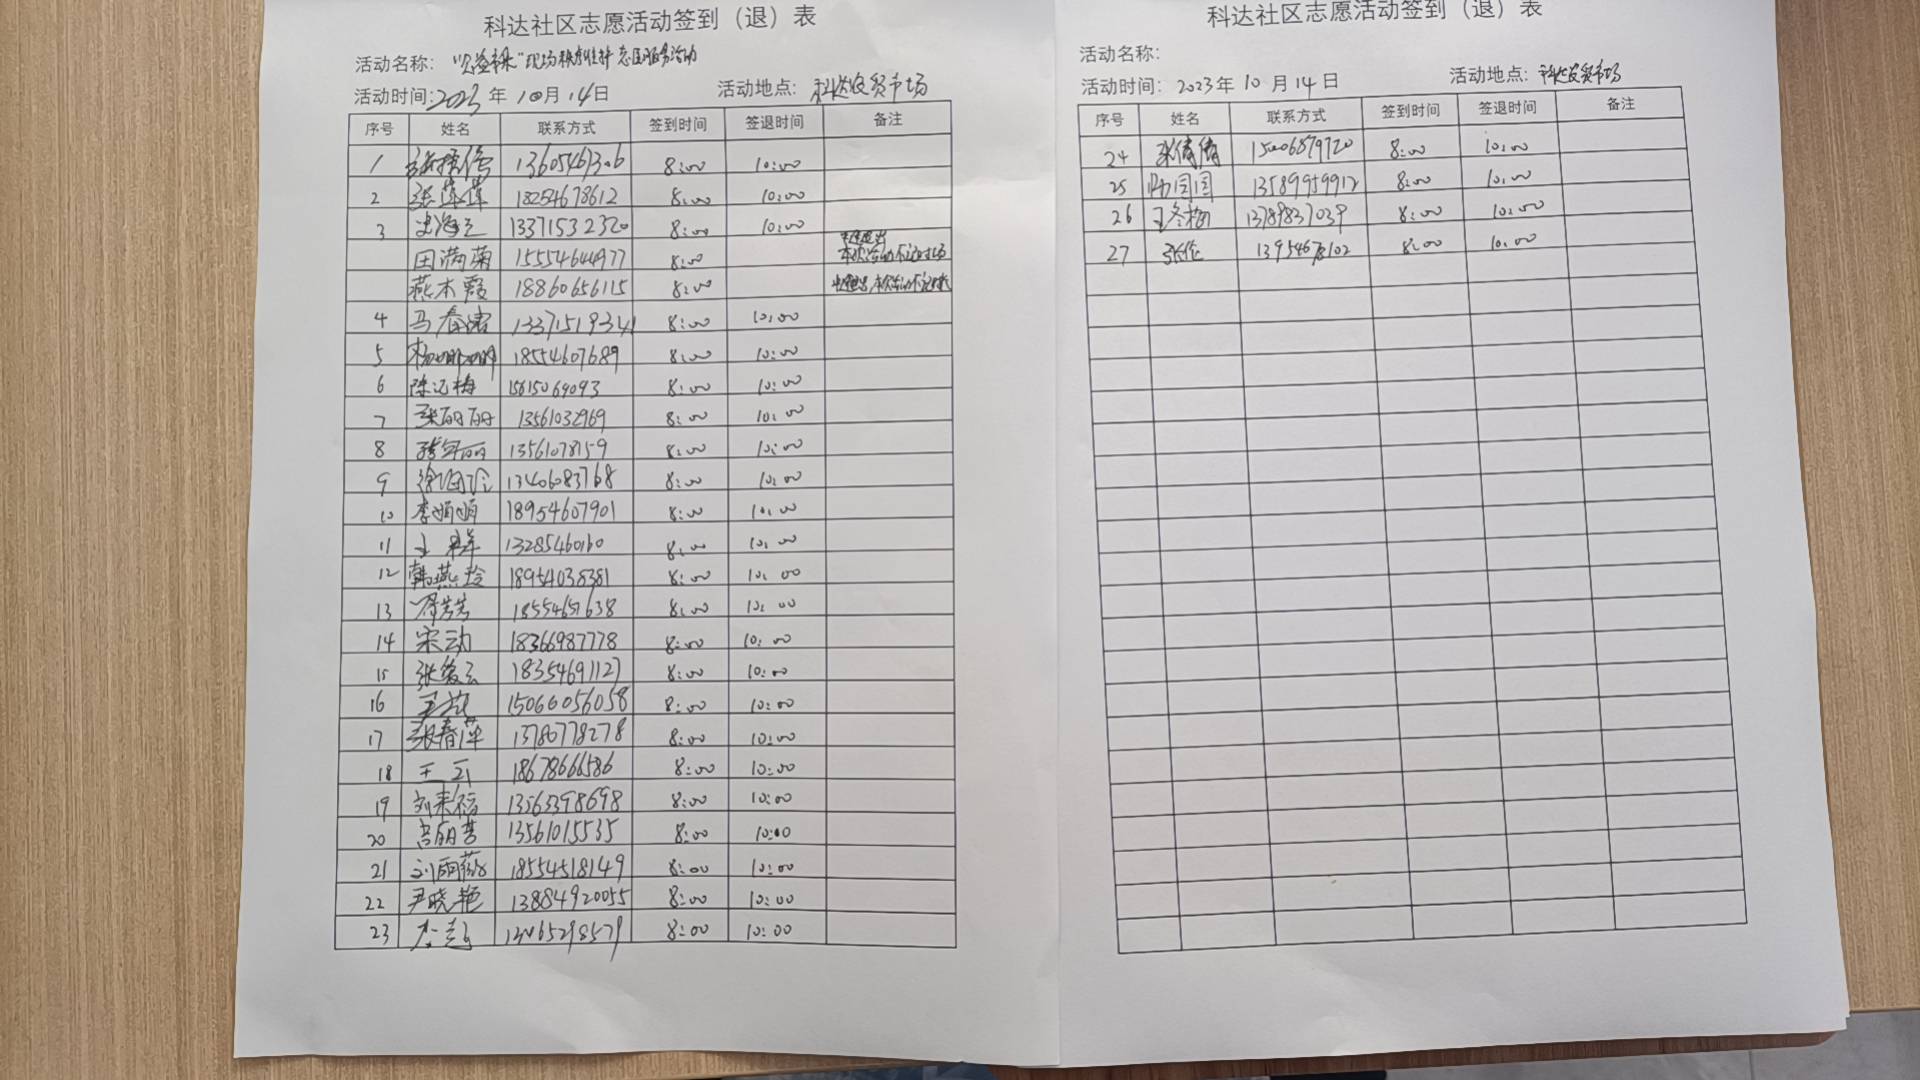 科达社区志愿活动签到（退）表
活动名称：“公益集”现场秩序维持志愿服务活动
活动时间:2023年10月14日 活动地点：科达农贸市场
序号 姓名 联系方式 签到时间 签退时间 备注
1 13605461306 8:00 10:00
2 张萍萍 18254678612 8:00 10:00
3 史海兰 13371532320 8:00 10:00
田满菊 15554644977 8:00 中途退出 本次活动不记时长
燕木霞 18860656115 8:00 中途退出,本次活动不记时长
4 马春诺 13371519341 8:00 10:00
5 杨娜娜 18554607689 8:00 10:00
6 陈记梅 15615069093 8:00 10:00
7 张丽丽 13561032969 8:00 10:00
8 13561078159 8:00 10:00
9 13406083768 8:00 10:00
10 李娟娟 18954607901 8:00 10:00
11 13285460160 8:00 10:00
12 韩燕玲 18954038381 8:00 10:00
13 18554651638 8:00 10:00
14 宋动 18366987778 8:00 10:00
15 18354691127 8:00 10:00
16 15066056058 8:00 10:00
17 张春萍 13780778278 8:00 10:00
18 王云 18678666586 8:00 10:00
19 刘来福 13563398698 8:00 10:00
20 13561015535 8:00 10:00
21 刘雨薇 18554518149 8:00 10:00
22 尹晓艳 13884920055 8:00 10:00
23 13465298579 8:00 10:00
科达社区志愿活动签到（退）表
活动名称：
活动时间：2023年10月14日 活动地点：科达农贸市场
序号 姓名 联系方式 签到时间 签退时间 备注
24 张倩倩 15006879720 8:00 10:00
25 13589959912 8:00 10:00
26 王冬梅 13789837039 8:00 10:00
27 张伦 13954678102 8:00 10:00